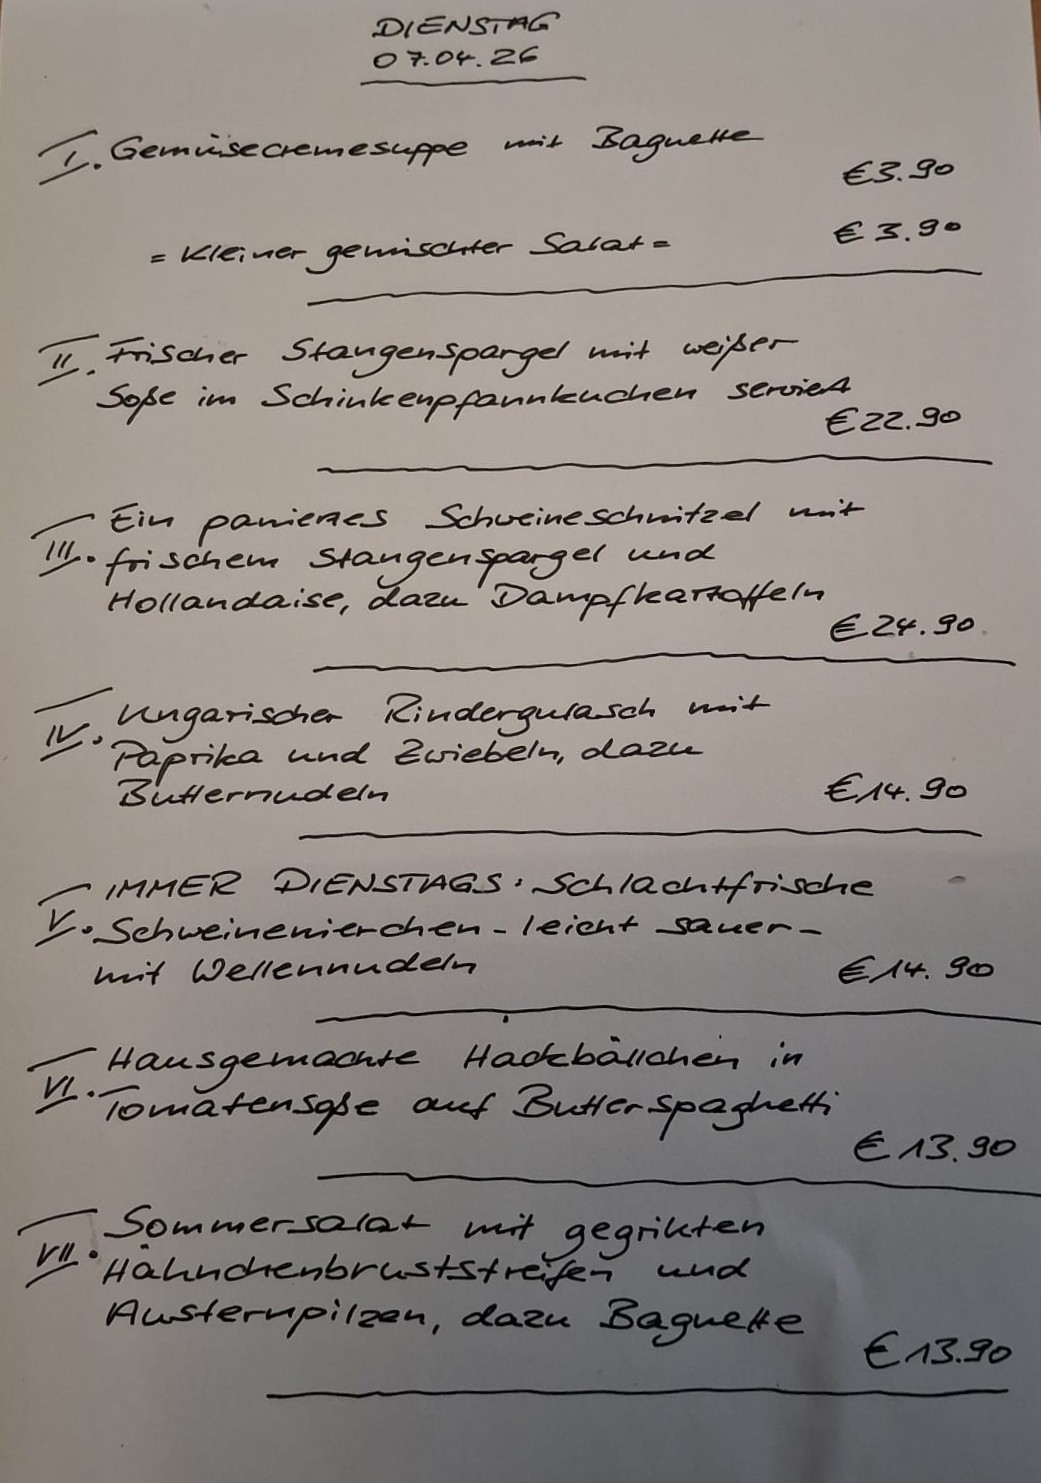 DIENSTAG
07.04.26
I. Gemüsecremesuppe mit Baguette
€3.90
= Kleiner gemischter Salat =
€3.90
II. Frischer Stangenspargel mit weißer
Soße im Schinkenpfannkuchen serviert
€22.90
III. Ein paniertes Schweineschnitzel mit
frischem Stangenspargel und
Hollandaise, dazu Dampfkartoffeln
€24.90
IV. Ungarischer Rindergulasch mit
Paprika und Zwiebeln, dazu
Butternudeln
€14.90
V. IMMER DIENSTAGS: Schlachtfrische
Schweinenierchen - leicht sauer -
mit Wellennudeln
€14.90
VI. Hausgemachte Hackbällchen in
Tomatensoße auf Butterspaghetti
€13.90
VII. Sommersalat mit gegrillten
Hähnchenbruststreifen und
Austernpilzen, dazu Baguette
€13.90